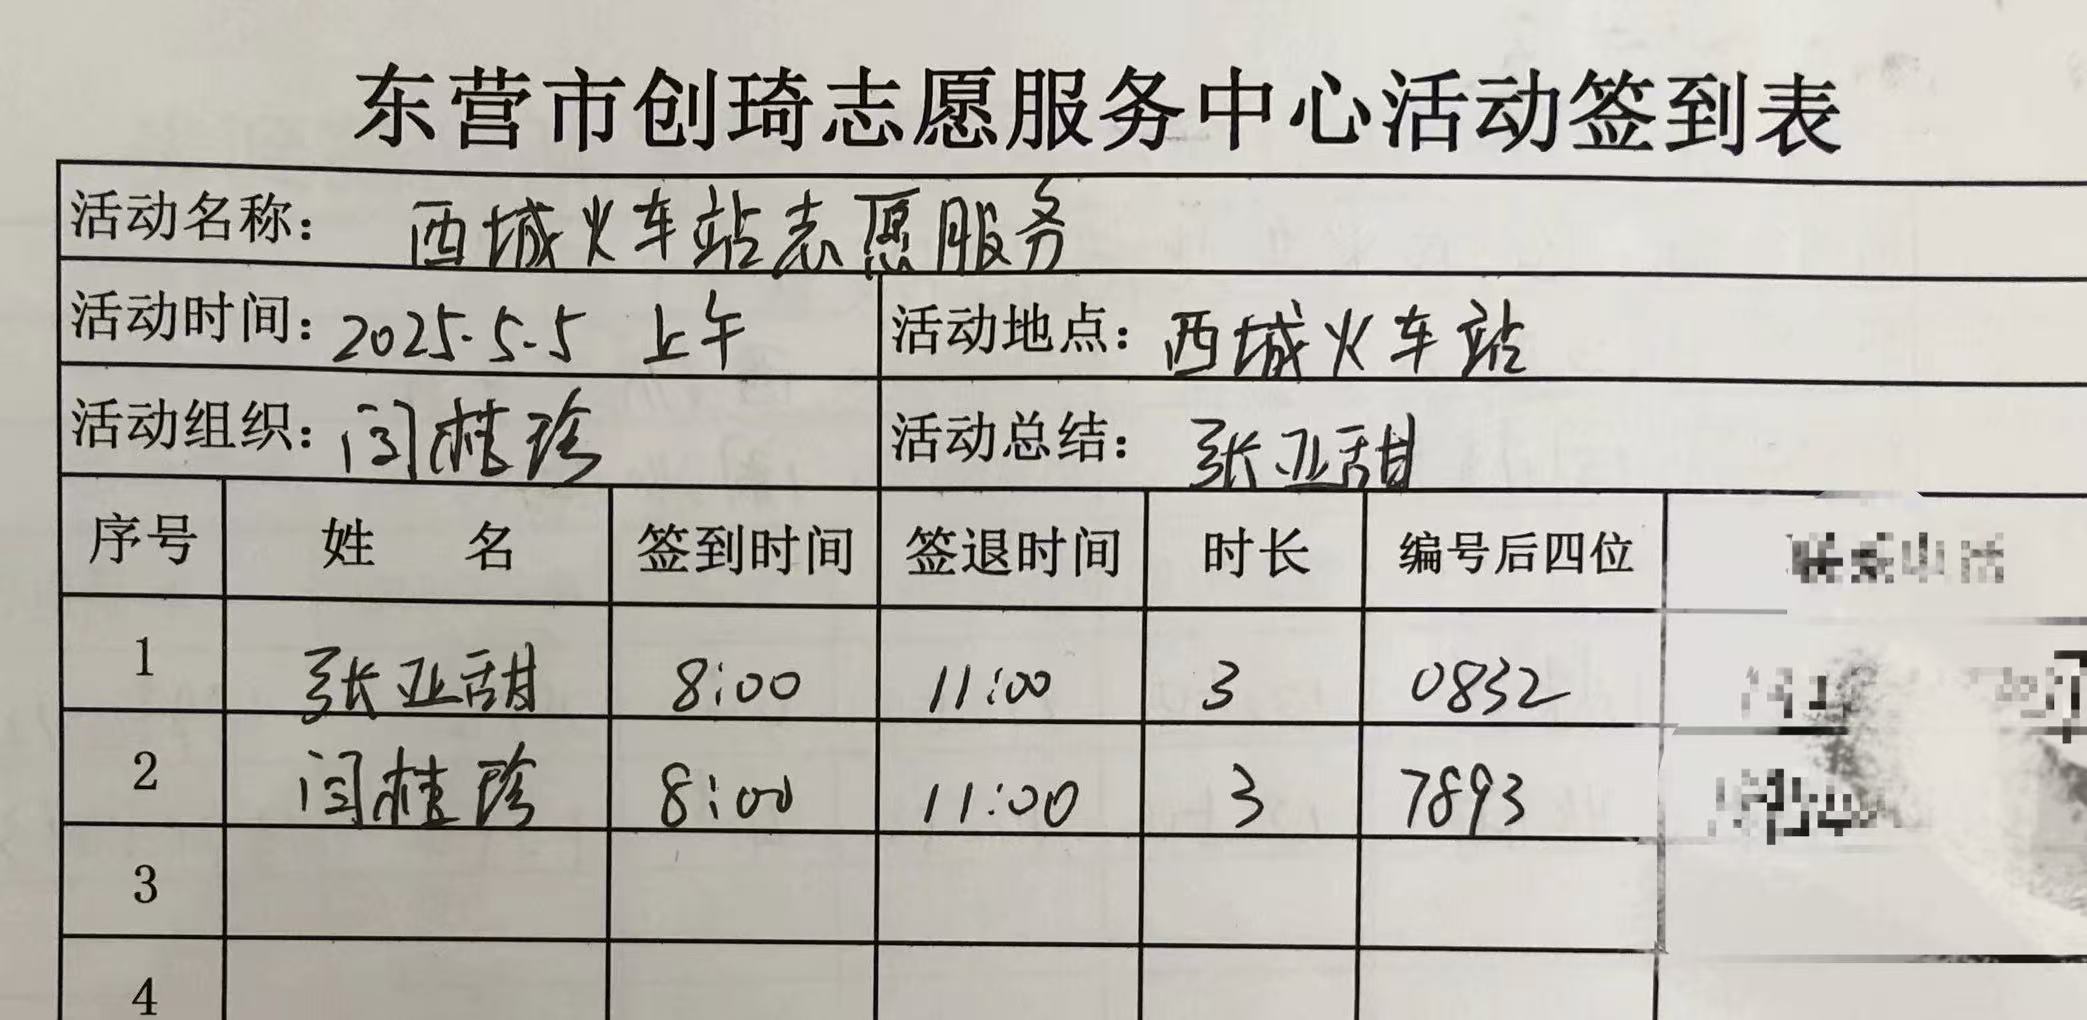 东营市创琦志愿服务中心活动签到表
活动名称： 西城火车站志愿服务
活动时间：2025.5.5 上午 活动地点：西城火车站
活动组织：闫桂珍 活动总结：张亚甜
序号 姓 名 签到时间 签退时间 时长 编号后四位
1 张亚甜 8:00 11:00 3 0832
2 闫桂珍 8:00 11:00 3 7893
3
4